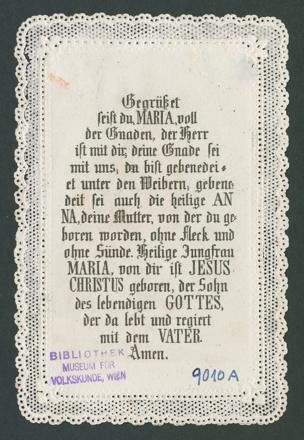 Gegrüßet
seist du, MARIA, voll
der Gnaden, der Herr
ist mit dir, deine Gnade sei
mit uns, du bist gebenedei-
et unter den Weibern, gebene
deit sei auch die heilige AN
NA, deine Mutter, von der du ge
boren worden, ohne Fleck und
ohne Sünde. Heilige Jungfrau
MARIA, von dir ist JESUS
CHRISTUS geboren, der Sohn
des lebendigen GOTTES,
der da lebt und regiert
mit dem VATER.
Amen.
BIBLIOTHEK
MUSEUM FÜR
VOLKSKUNDE, WIEN
9010A